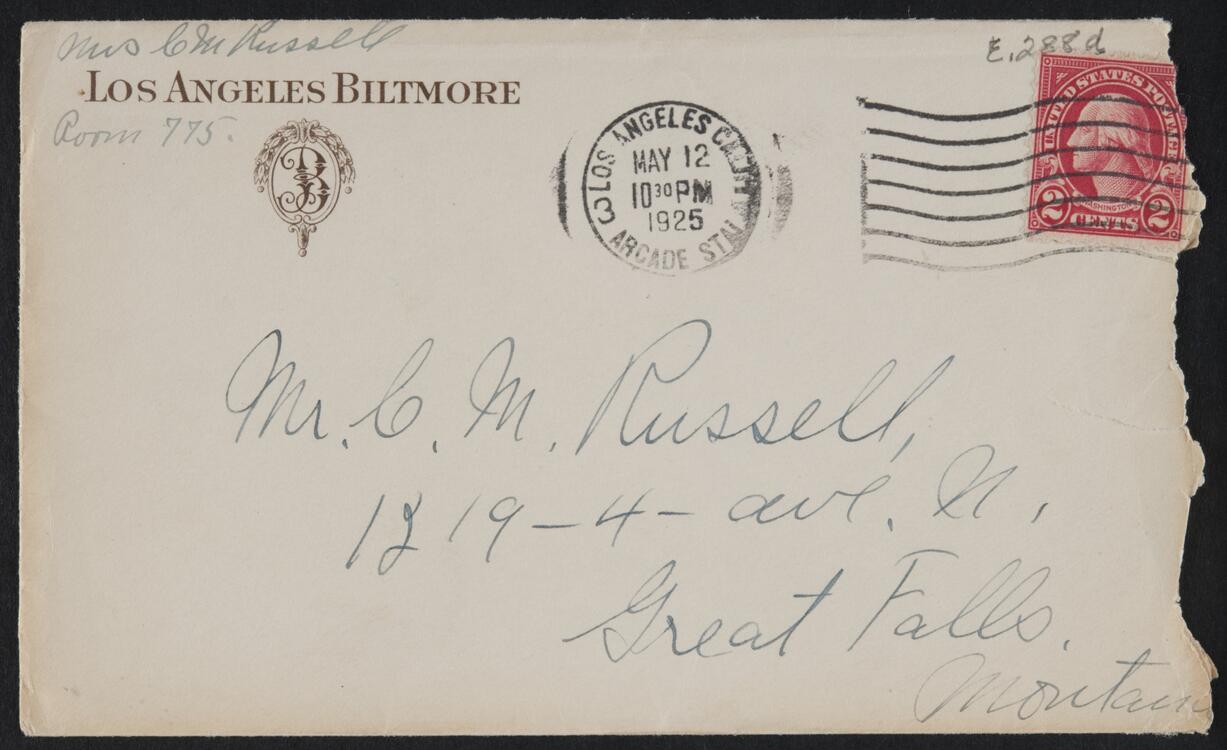 Mrs C M Russell
LOS ANGELES BILTMORE
Room 775.
E.288d
LOS ANGELES CALIF
MAY 12
10 30 PM
1925
3 ARCADE STA.
UNITED STATES POSTAGE
WASHINGTON
2 CENTS 2
Mr. C. M. Russell,
1219-4-ave. N.,
Great Falls.
Montana